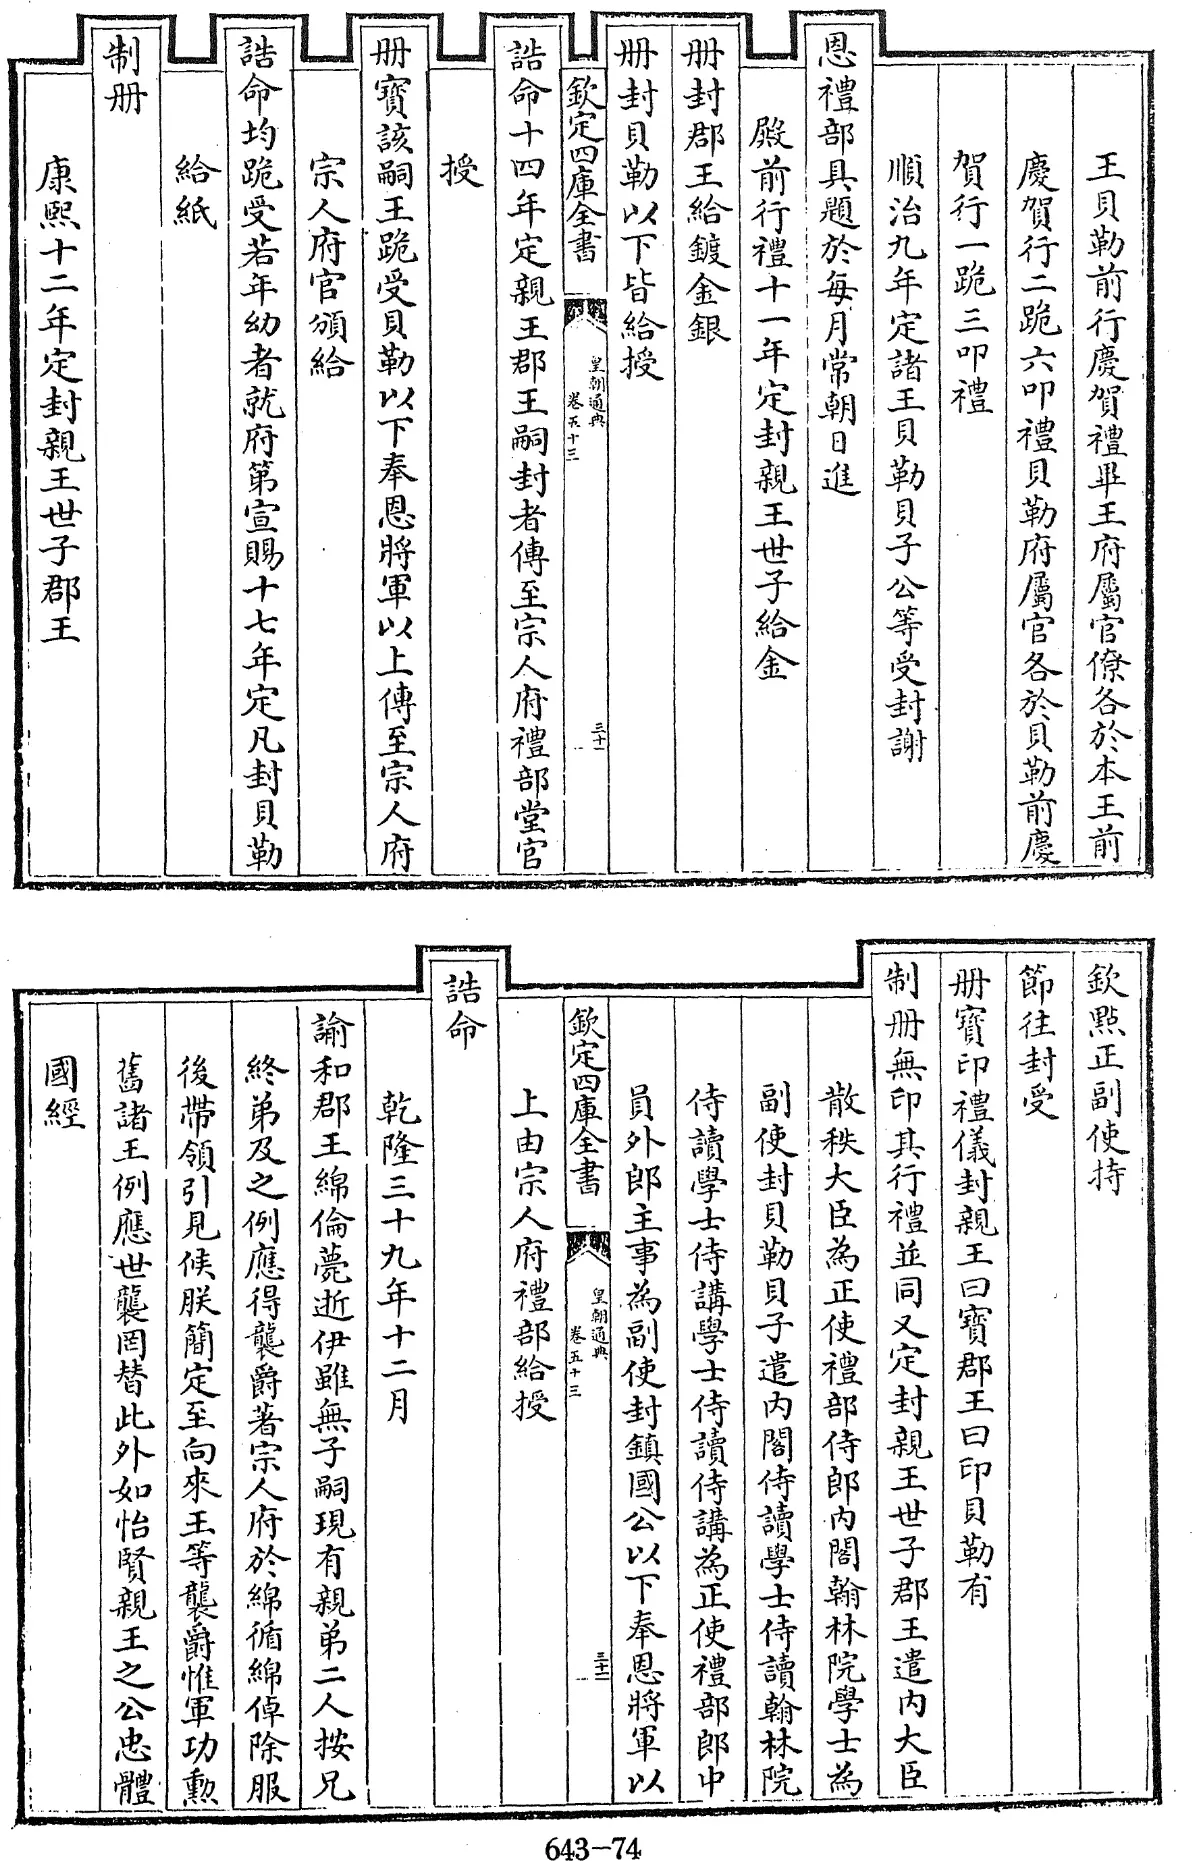 王貝勒前行慶賀禮畢王府屬官僚各於本王前
慶賀行二跪六叩禮貝勒府屬官各於貝勒前慶
賀行一跪三叩禮
順治九年定諸王貝勒貝子公等受封謝
恩禮部具題於每月常朝日進
殿前行禮十一年定封親王世子給金
册封郡王給鍍金銀
册封貝勒以下皆給授
欽定四庫全書
皇朝通典
卷五十三
三十一
誥命十四年定親王郡王嗣封者傳至宗人府禮部堂官
授
册寶該嗣王跪受貝勒以下奉恩將軍以上傳至宗人府
宗人府官頒給
誥命均跪受若年幼者就府第宣賜十七年定凡封貝勒
給紙
制册
康熙十二年定封親王世子郡王
欽點正副使持
節往封受
册寶印禮儀封親王曰寶郡王曰印貝勒有
制册無印其行禮並同又定封親王世子郡王遣内大臣
散秩大臣為正使禮部侍郎内閣翰林院學士為
副使封貝勒貝子遣内閣侍讀學士侍讀翰林院
侍讀學士侍講學士侍讀侍講為正使禮部郎中
員外郎主事為副使封鎮國公以下奉恩將軍以
上由宗人府禮部給授
欽定四庫全書
皇朝通典
卷五十三
三十二
誥命
乾隆三十九年十二月
諭和郡王綿倫薨逝伊雖無子嗣現有親弟二人按兄
終弟及之例應得襲爵著宗人府於綿循綿倬除服
後帶領引見候朕簡定至向來王等襲爵惟軍功勲
舊諸王例應世襲罔替此外如怡賢親王之公忠體
國經
643-74